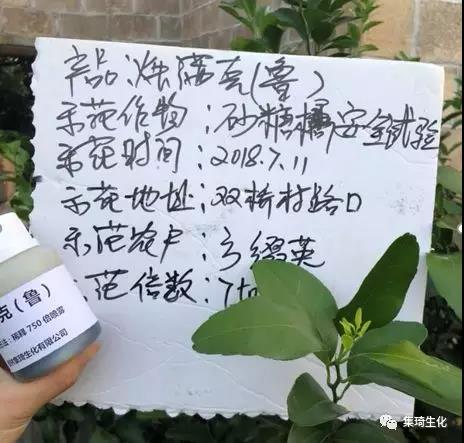 产品:炔满克(鲁)
示范作物:砂糖橘安全试验
示范时间:2018.7.11
示范地址:双桥村路口
示范农户:方 英
范倍数:7
克(鲁)
法:稀释750倍喷雾
集琦生化有限公司
集琦生化